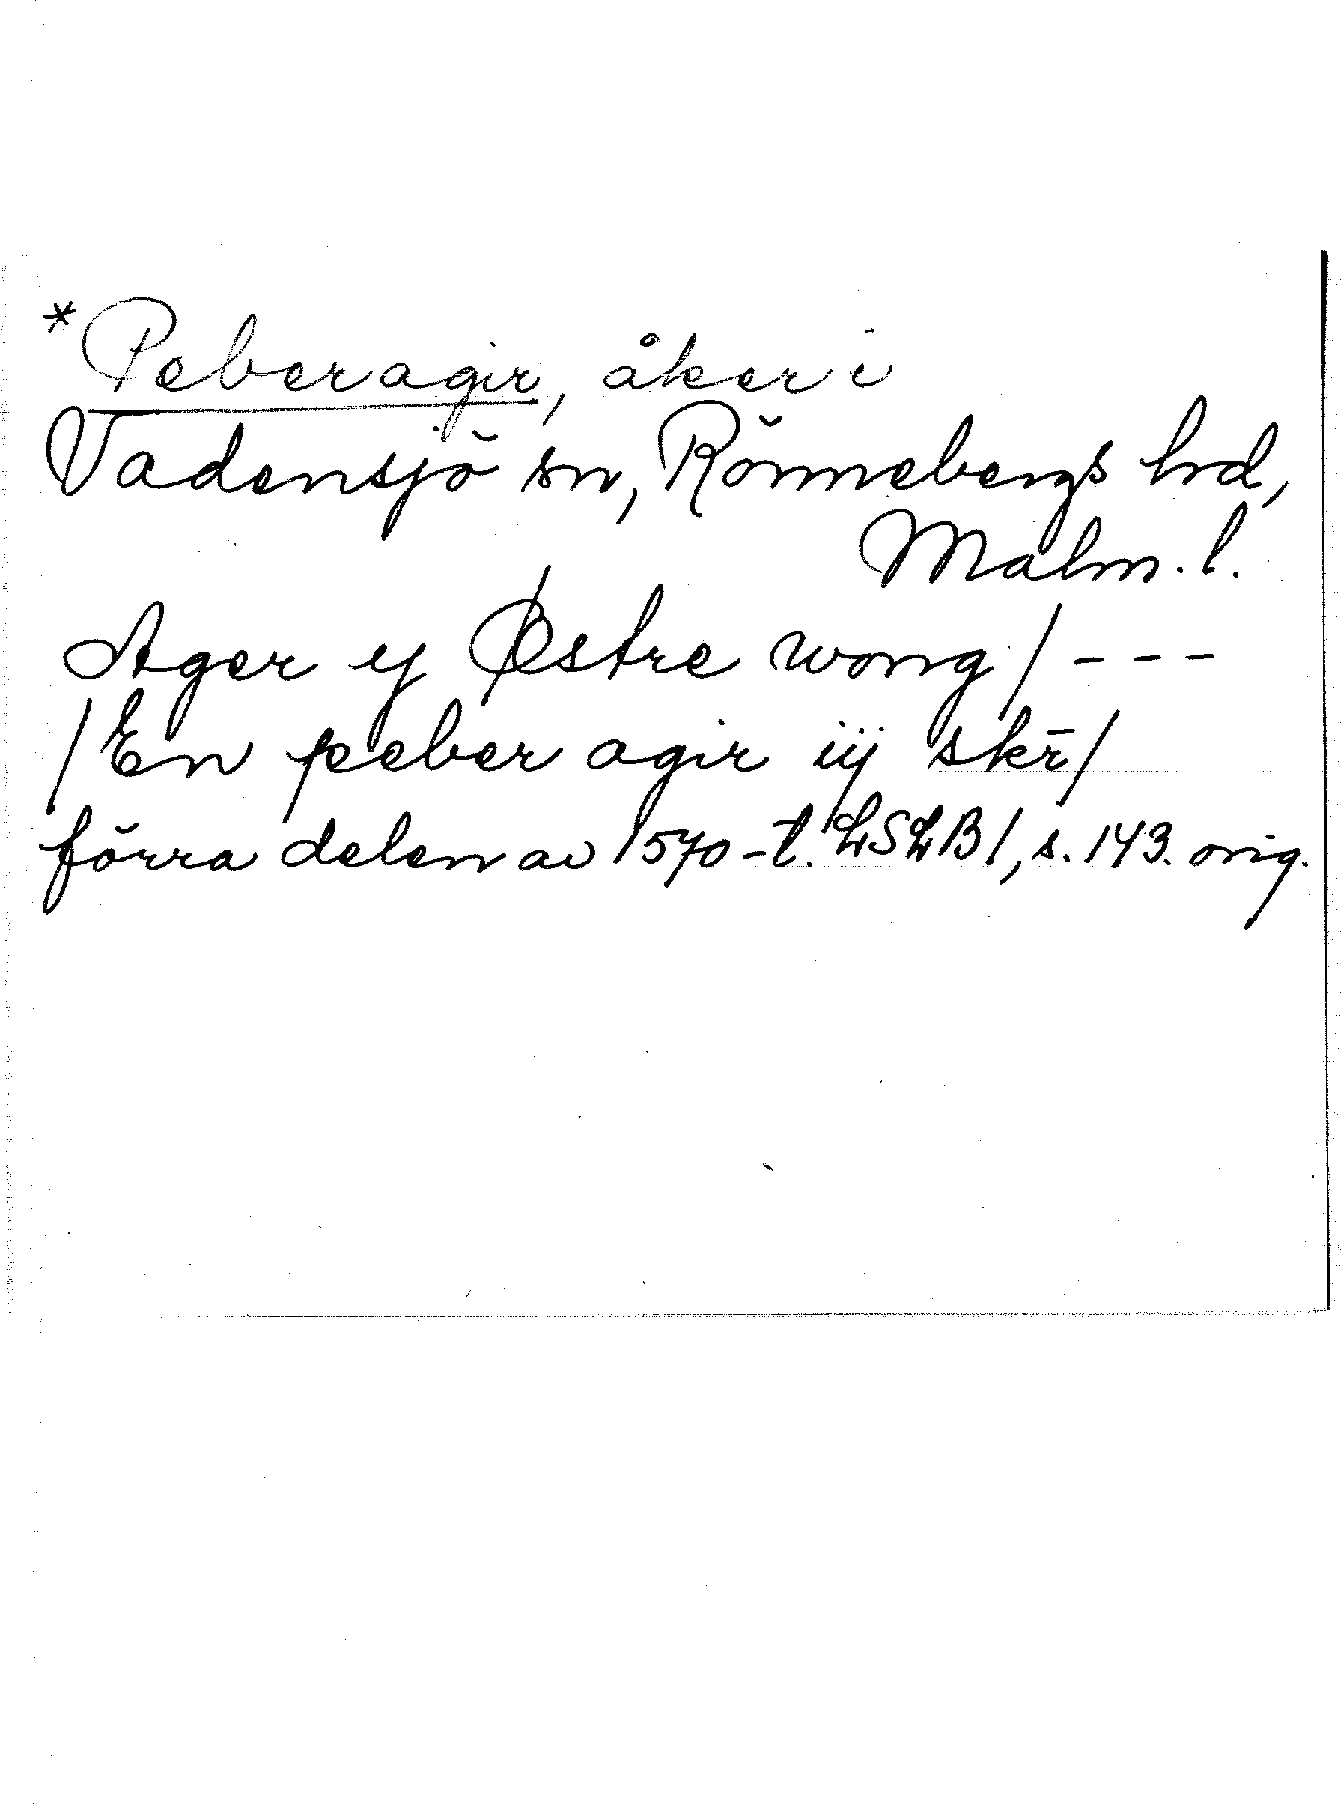 *Peberagir, åker i
Vadensjö sn, Rönnebergs hd,
Malm. l.
Ager y Østre wong / - - -
/ En peber agir iij skr̄ /
förra delen av 1570-t. LSLB 1, s. 143. orig.